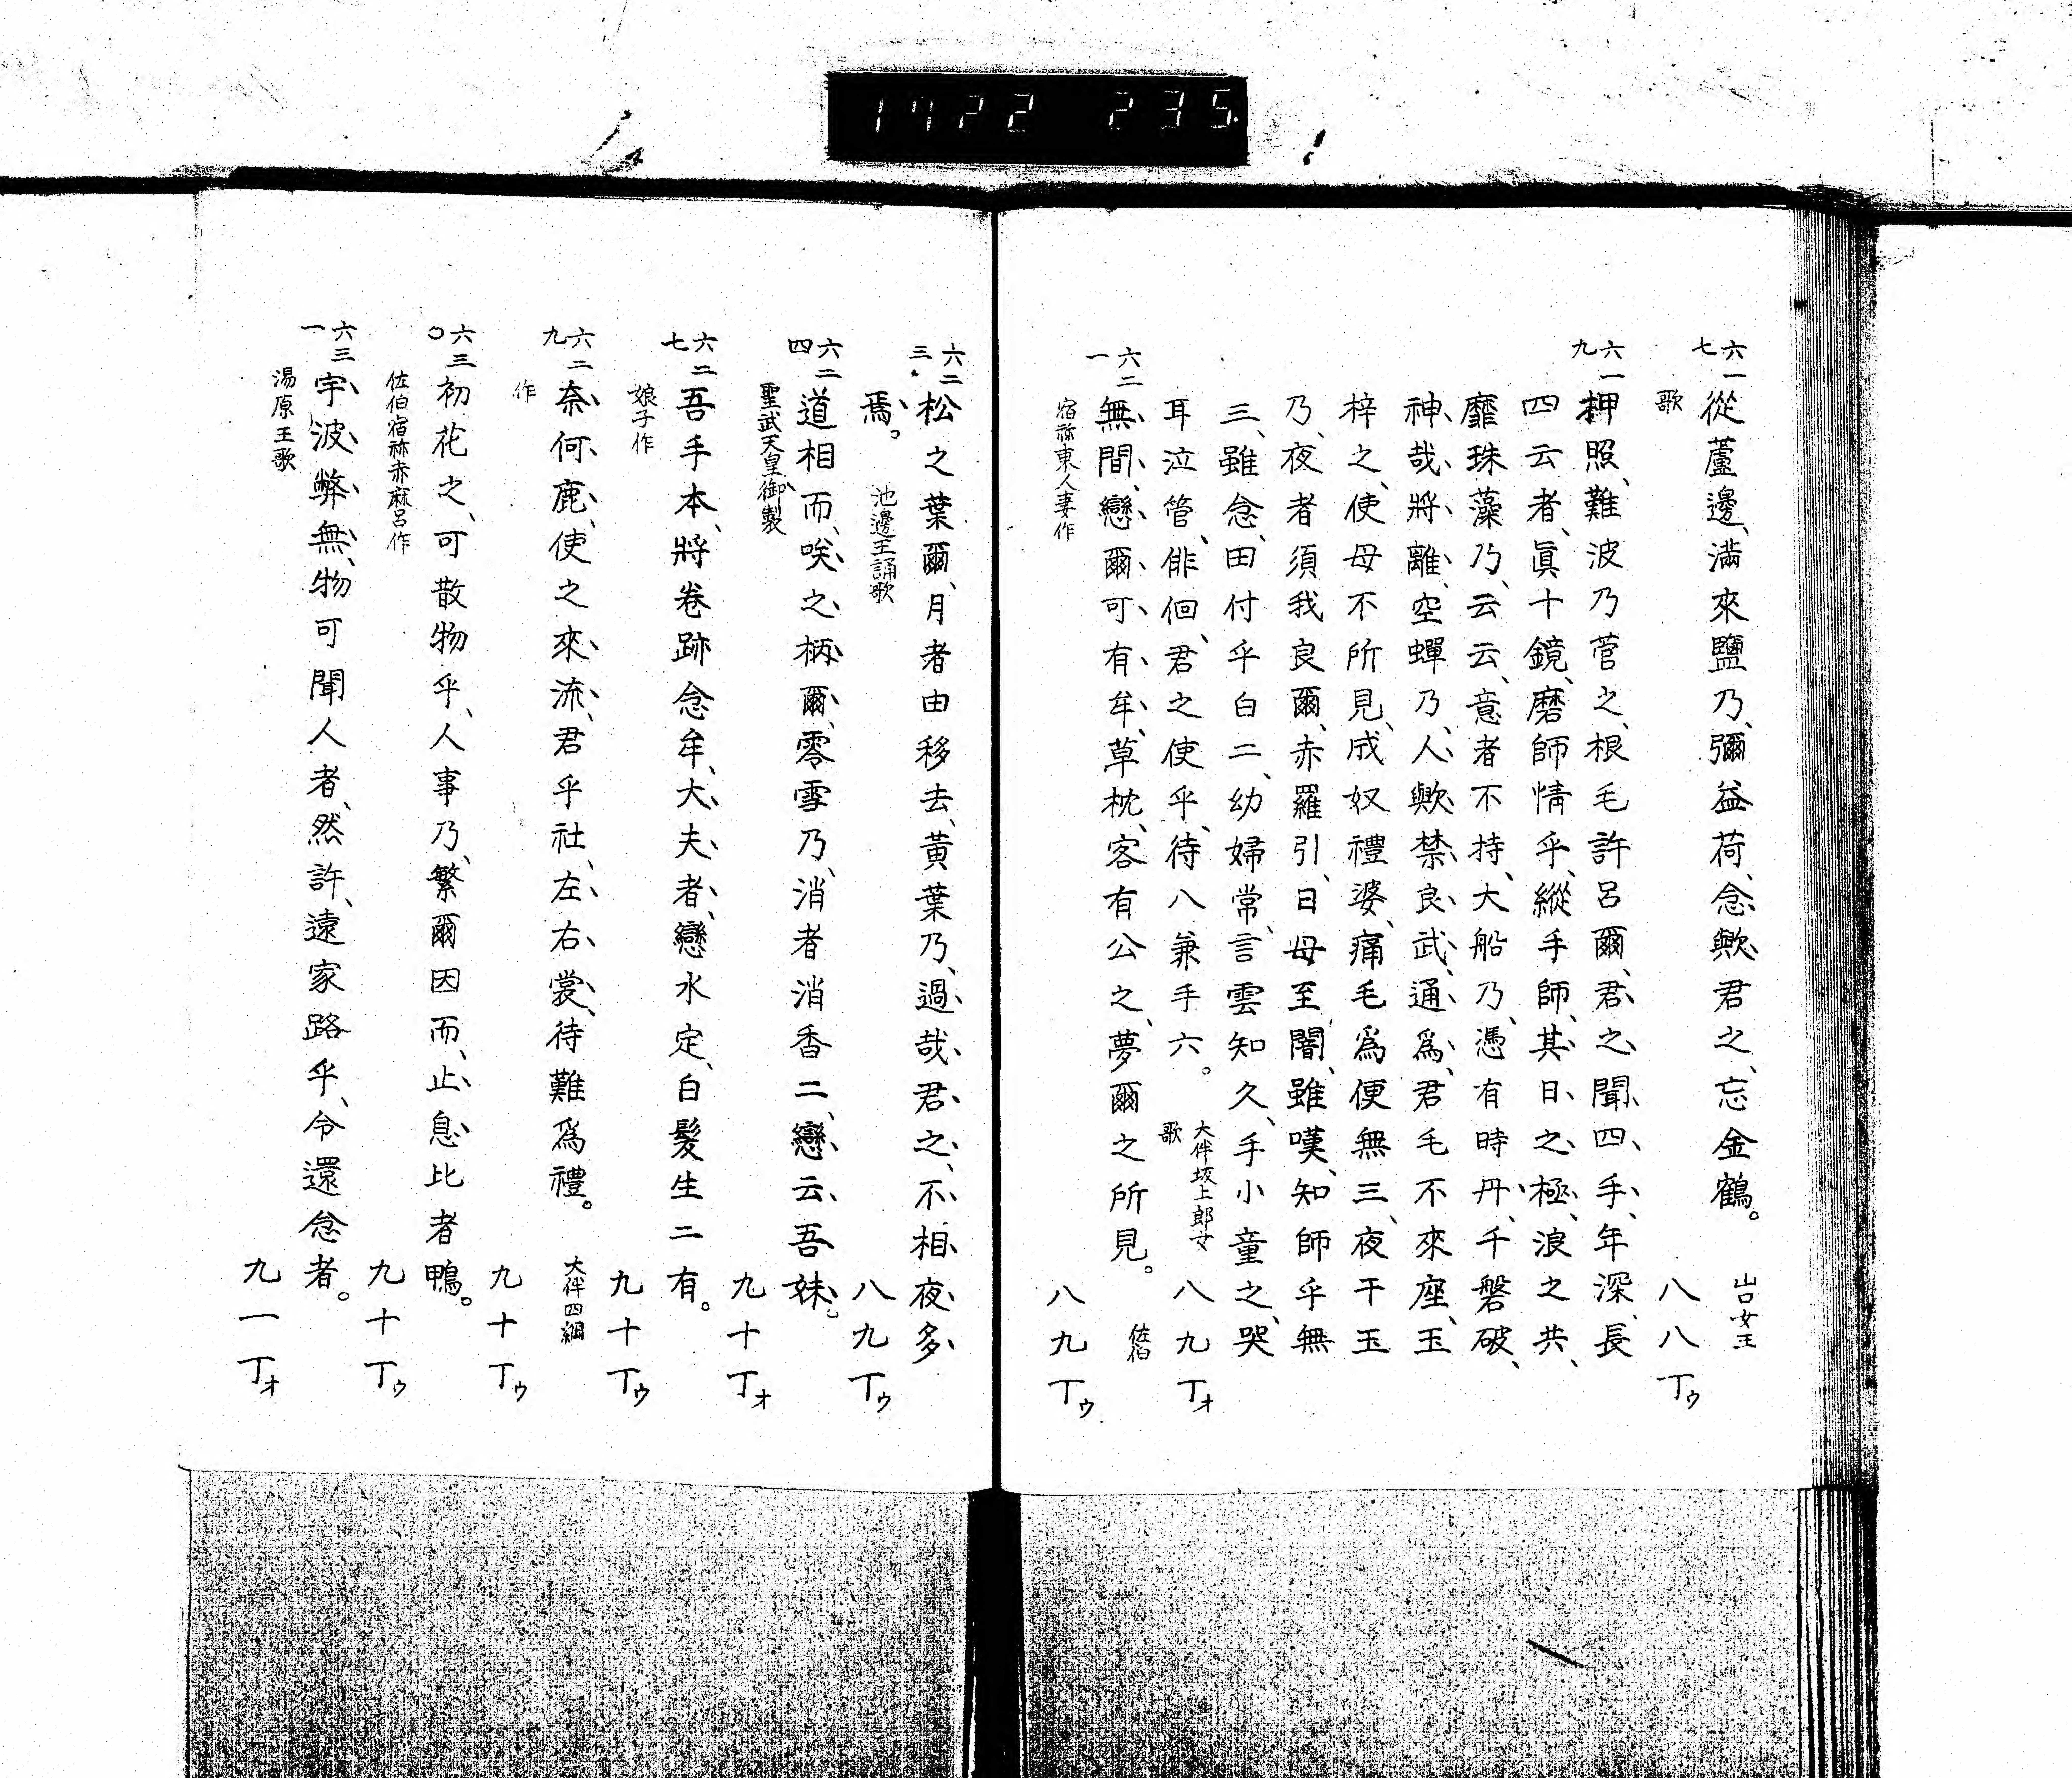 1722 235.
六一七 從蘆邊、滿來鹽乃、彌益荷、念歟君之、忘金鶴。 山口女王
歌 八八丁ウ
六一九 押照、難波乃菅之、根毛許呂爾、君之聞四手、年深、長
四云者、眞十鏡、磨師情乎、縱手師、其日之極、浪之共、
靡珠藻乃、云云、意者不持、大船乃、憑有時丹、千磐破、
神哉將離、空蟬乃、人歟禁良武、通爲、君毛不來座、玉
梓之、使母不所見、成奴禮婆、痛毛爲便無三、夜干玉
乃、夜者須我良爾、赤羅引、日母至闇、雖嘆、知師乎無
三、雖念、田付乎白二、幼婦常、言雲知久、手小童之、哭
耳泣管、俳佪、君之使乎、待八兼手六。 大伴坂上郎女
歌 八九丁オ
六二一 無間、戀爾可有牟、草枕、客有公之、夢爾之所見。 佐伯
宿祢東人妻作 八九丁ウ
六二三 松之葉爾、月者由移去、黃葉乃、過哉君之、不相夜多
焉。 池邊王誦歌 八九丁ウ
六二四 道相而、咲之柄爾、零雪乃、消者消香二、戀云、吾妹。
聖武天皇御製 九十丁オ
六二七 吾手本、將卷跡念牟、大夫者、戀水定、白髮生二有。
娘子作 九十丁ウ
六二九 奈何鹿、使之來流、君乎社、左右裳、待難爲禮。 大伴四綱
作 九十丁ウ
六三〇 初花之、可散物乎、人事乃、繁爾因而、止息比者鴨。
佐伯宿祢赤麻呂作 九十丁ウ
六三一 宇波弊無、物可聞人者、然許、遠家路乎、令還念者。
湯原王歌 九一丁オ